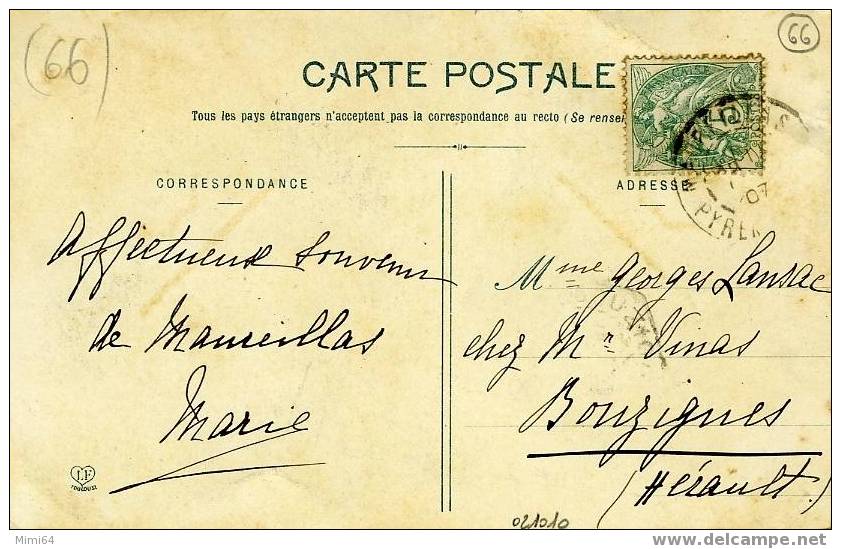 (66)
66
CARTE POSTALE
Tous les pays étrangers n'acceptent pas la correspondance au recto (Se rensei
CORRESPONDANCE
Affectueux souvenir
de Maureillas
Marie
L.F
TOULOUSE
ADRESSE
07
PYREN
Mme Georges Lansac
chez Mr Vinas
Bouzigues
(Hérault)
021010
Mimi64
delcampe.net